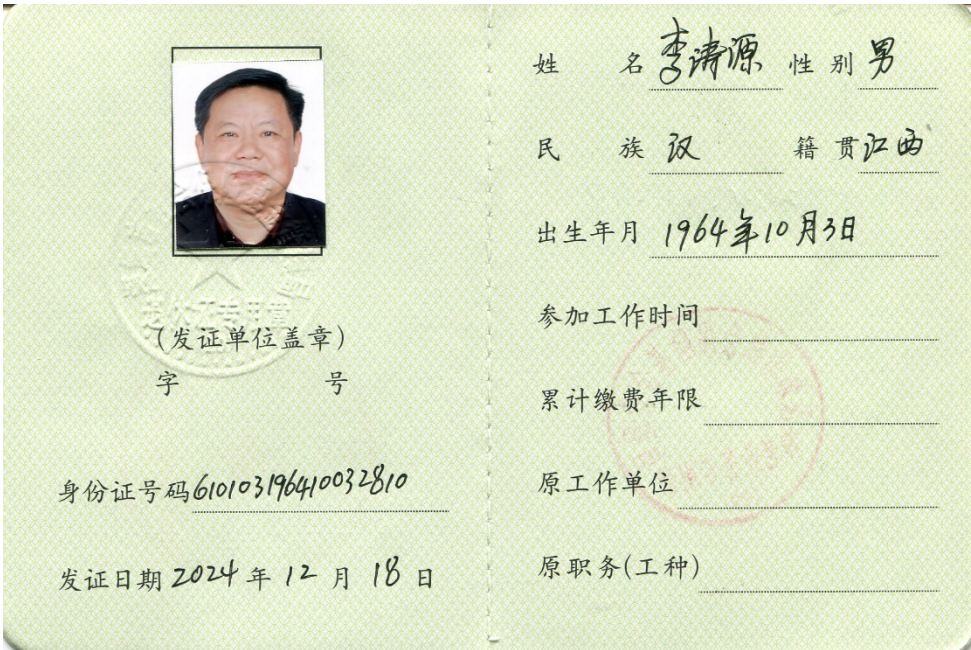 (发证单位盖章)
字 号
身份证号码 610103196410032810
发证日期 2024 年 12 月 18 日
姓 名 李涛源 性 别 男
民 族 汉 籍 贯 江西
出生年月 1964年10月3日
参加工作时间
累计缴费年限
原工作单位
原职务(工种)
退休证专用章